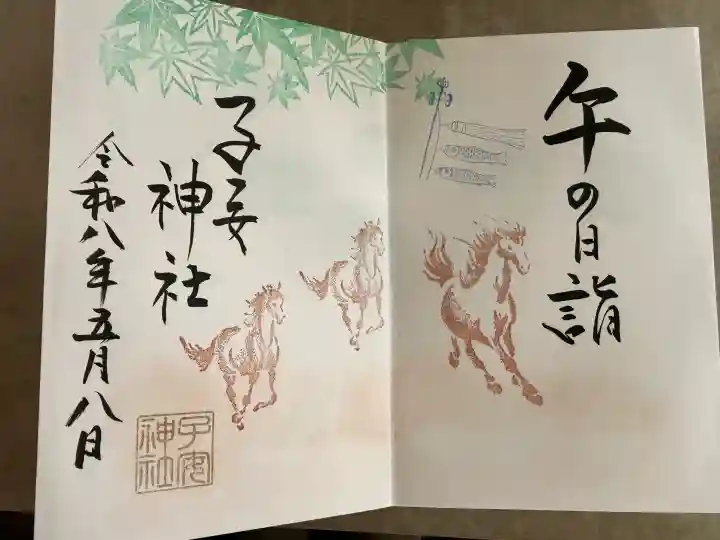 午の日詣
子安
神社
令和八年五月八日
子安
神社